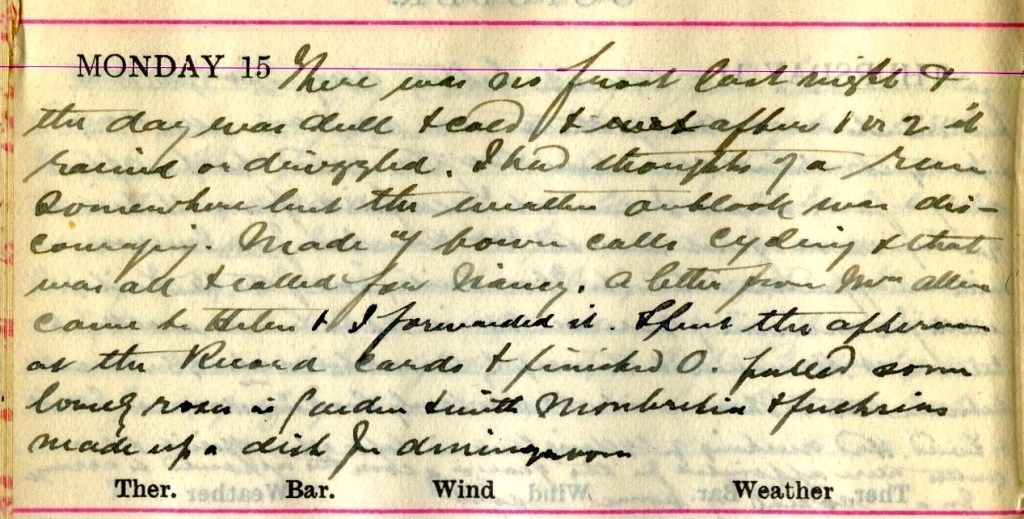 MONDAY 15 There was no frost last night &
the day was dull & cold & after 1 or 2 it
rained or drizzled. I had thoughts of a run
somewhere but the weather outlook was dis-
couraging. Made my town calls cycling & that
was all & called for Nancy. A letter from Mrs Allen
came to Helen & I forwarded it. Spent the afternoon
at the Record Cards & finished O. pulled some
lovely roses in Garden & with Monbretia & fuchsias
made up a dish for diningroom
Ther. Bar. Wind Weather